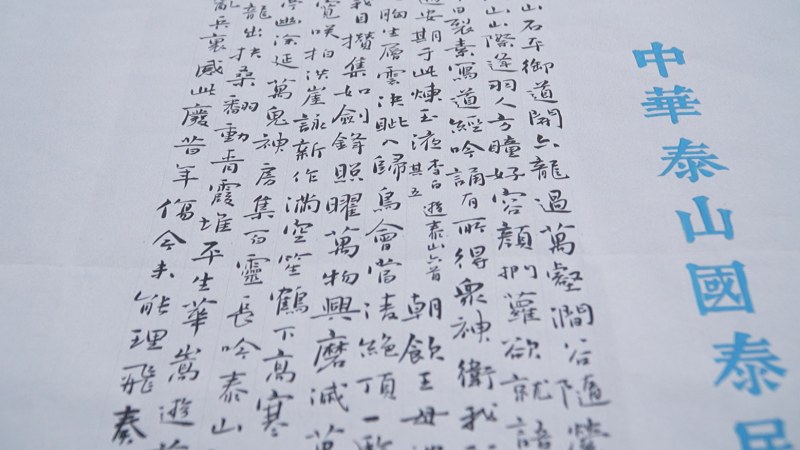 中華泰山國泰民
山石平御道開六龍過萬壑澗谷隨縈
山際逢羽人方瞳好容顏捫蘿欲就語
日裂素寫道經吟誦有所得衆神衛我
安期于此煉玉液李白遊泰山六首其五朝飲王母
胸生層雲決眦入歸鳥會當凌絶頂一
我目攢集如劍鋒照曜萬物興磨滅萬
寛咲拍洪崖詠新作滿空笙鶴下高寒
幽涂延萬鬼神房集百靈長吟泰山
龍出扶桑翻動青霞堆平生華嵩遊
亂兵裏感此廢昔年傷今未能理飛奏